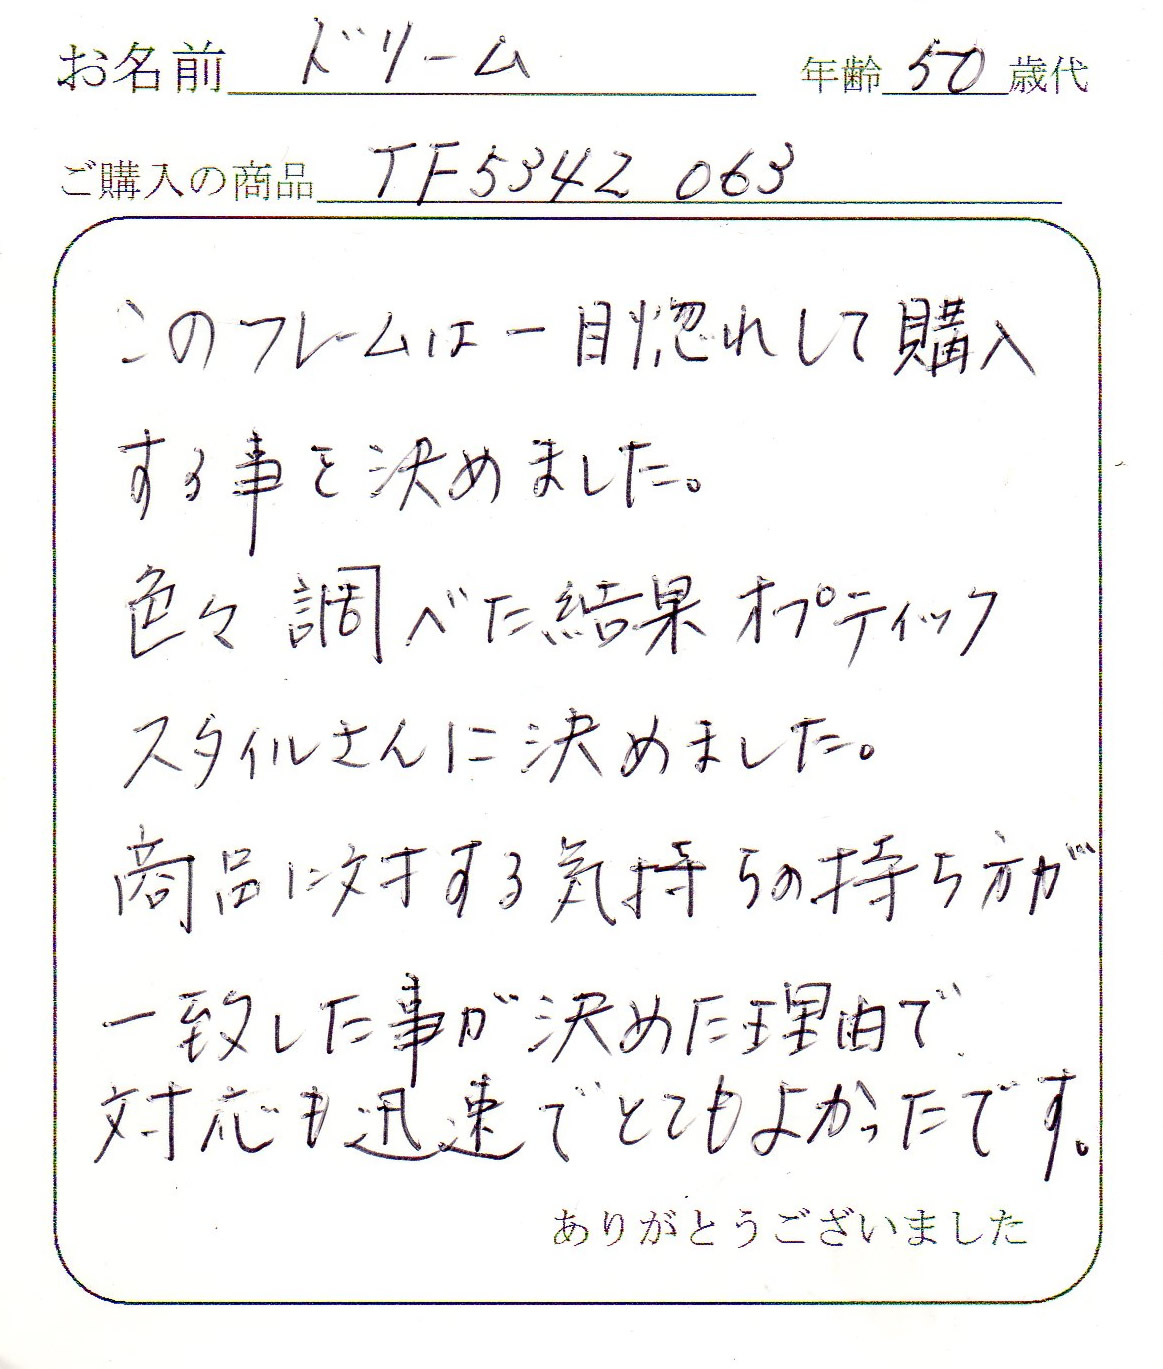 お名前 ドリーム 年齢 50 歳代
ご購入の商品 TF5342 063
このフレームは一目惚れして購入
する事を決めました。
色々調べた結果オプティック
スタイルさんに決めました。
商品に対する気持ちの持ち方が
一致した事が決めた理由で
対応も迅速でとてもよかったです。
ありがとうございました